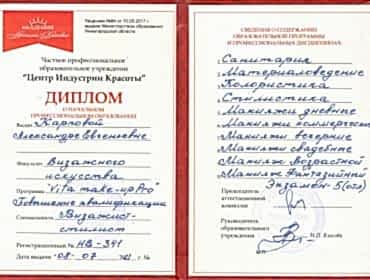 Лицензия №84 от 10.05.2017 г.
выдана Министерством Образования
Нижегородской области
АКАДЕМИЯ
Частное профессиональное
образовательное учреждение
"Центр Индустрии Красоты"
ДИПЛОМ
О НАЧАЛЬНОМ
ПРОФЕССИОНАЛЬНОМ ОБРАЗОВАНИИ
Выдан Карповой
Александре Евгеньевне
Факультет Визажного
искусства
Программа "Vita make-up Pro"
Повышение квалификации
Специальность "Визажист-
стилист
Регистрационный № НВ-391
Дата выдачи 08.07
СВЕДЕНИЯ О СОДЕРЖАНИИ
ОБРАЗОВАТЕЛЬНОЙ ПРОГРАММЫ
И ПРОФЕССИОНАЛЬНЫХ ДИСЦИПЛИНАХ
Санитария
Материаловедение
Колористика
Стилистика
Макияжи дневные
Макияжи коммерческие
Макияжи вечерние
Макияжи свадебные
Макияж Возрастной
Макияж Фантазийный
Экзамен-5 (отл)
Председатель
аттестационной
комиссии
Руководитель
образовательного
учреждения